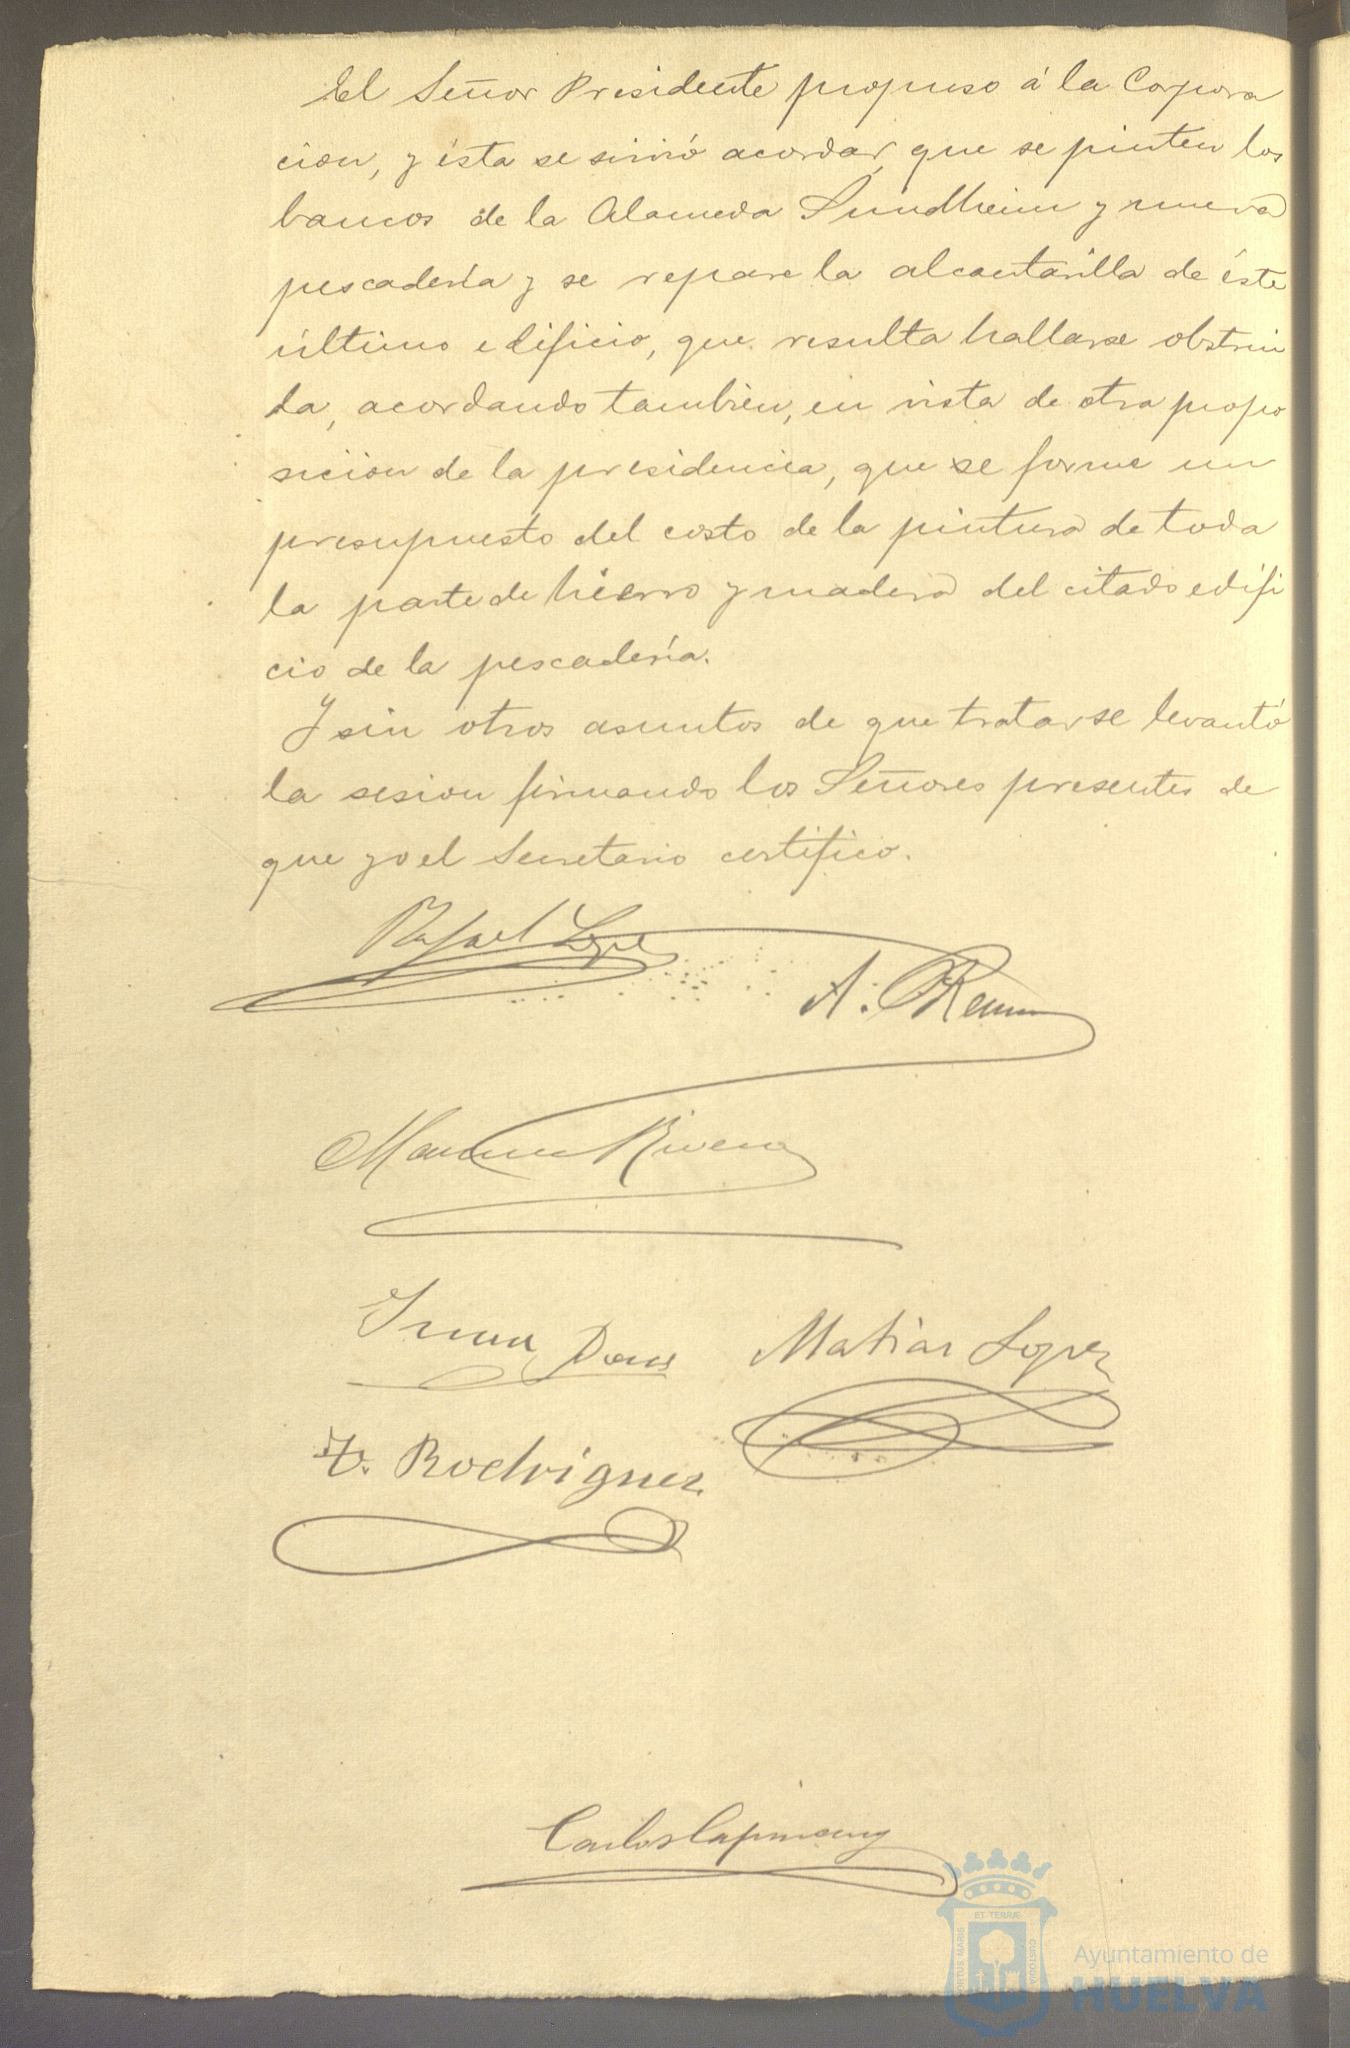 El Señor Presidente propuso á la Corpora
cion, y ésta se sirvió acordar, que se pinten los
bancos de la Alameda Sundheim y nueva
pescadería y se repare la alcantarilla de éste
último edificio, que resulta hallarse obstrui
da, acordando también, en vista de otra propo
sicion de la presidencia, que se forme un
presupuesto del costo de la pintura de toda
la parte de hierro y madera del citado edifi
cio de la pescadería.
Y sin otros asuntos de que tratar se levantó
la sesion firmando los Señores presentes de
que yo el Secretario certifico.
Rafael Lopez
A.
Manuel Rivera
Matias Lopez
Rodriguez
Carlos
ET TERRÆ
PORTUS MARIS
CUSTODIA
Ayuntamiento de
HUELVA